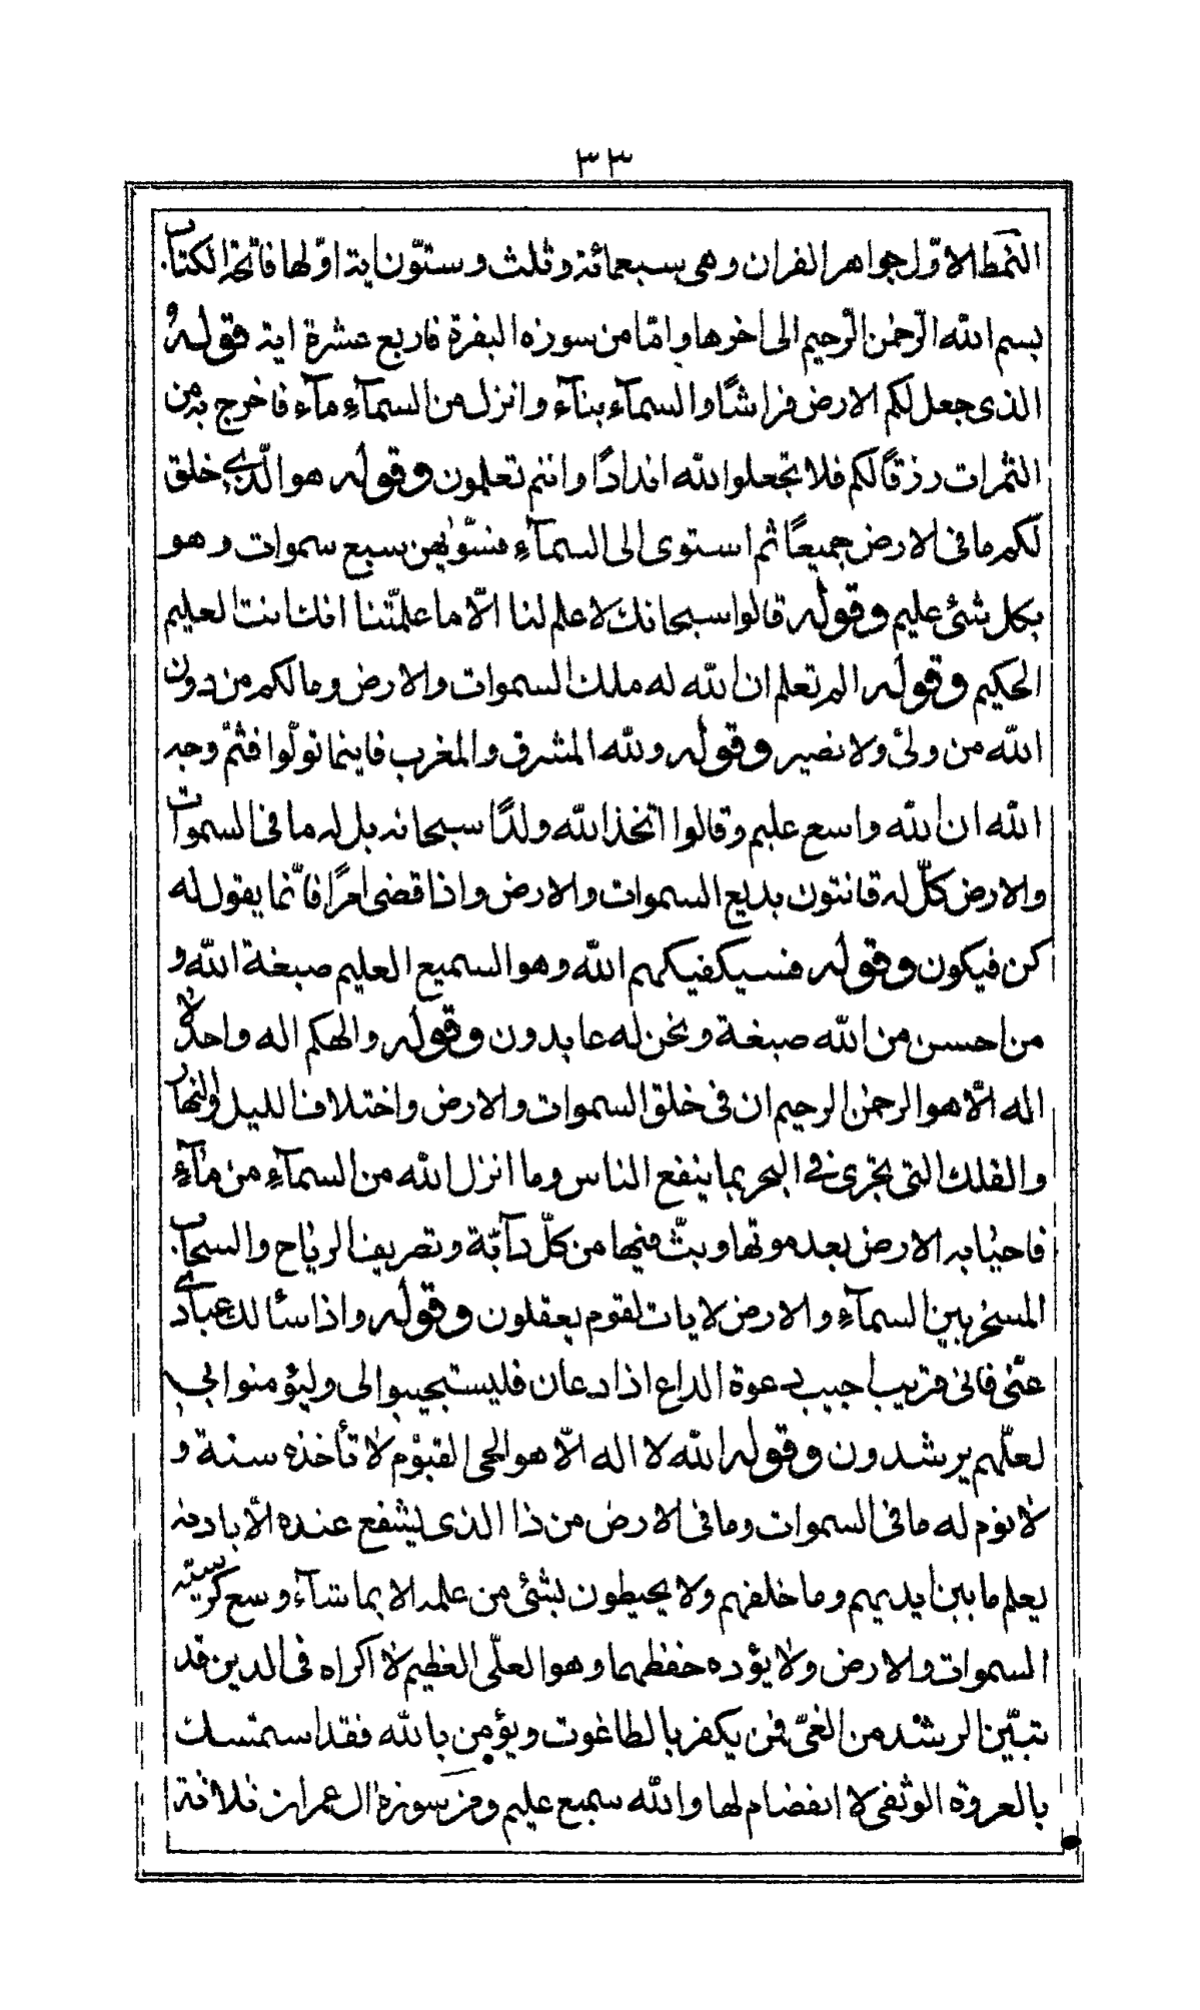 ٣٣
النمط الاوّل جواهر القران وهى سبعمائة وثلث وستّون اية اوّلها فاتحة الكتاب
بسم الله الرّحمن الرّحيم الى اخرها وامّا من سورة البقرة فاربع عشرة اية قوله
الذى جعل لكم الارض فراشًا والسمآء بنآء وانزل من السمآء مآء فاخرج به من
الثمرات رزقًا لكم فلا تجعلوا لله اندادًا وانتم تعلمون وقوله هو الّذى خلق
لكم ما فى الارض جميعًا ثم استوى الى السمآء فسّويهن سبع سموات وهو
بكل شئ عليم وقوله قالوا سبحانك لا علم لنا الّا ما علمّتنا انك انت العليم
الحكيم وقوله الم تعلم ان الله له ملك السموات والارض وما لكم من دون
الله من ولىّ ولا نصير وقوله ولله المشرق والمغرب فاينما تولّوا فثمّ وجه
الله ان الله واسع عليم وقالوا اتخذ الله ولدًا سبحانه بل له ما فى السموات
والارض كلّ له قانتون بديع السموات والارض واذا قضى امرًا فانّما يقول له
كن فيكون وقوله فسيكفيكهم الله وهو السميع العليم صبغة الله و
من احسن من الله صبغة ونحن له عابدون وقوله والهكم اله واحد لا
اله الّا هو الرحمن الرحيم ان فى خلق السموات والارض واختلاف الليل والنهار
والفلك التى تجرى فى البحر بما ينفع الناس وما انزل الله من السمآء من مآء
فاحيا به الارض بعد موتها وبثّ فيها من كلّ دآبّة وتصريف الرياح والسحاب
المسخر بين السمآء والارض لايات لقوم يعقلون وقوله واذا سألك عبادى
عنّى فانى قريب اجيب دعوة الداع اذا دعان فليستجيبوا لى وليؤمنوا بى
لعلّهم يرشدون وقوله الله لا اله الّا هو الحى القيوم لا تأخذه سنة و
لا نوم له ما فى السموات وما فى الارض من ذا الذى يشفع عنده الّا باذنه
يعلم ما بين ايديهم وما خلفهم ولا يحيطون بشئ من علمه الا بما شآء وسع كرسيّه
السموات والارض ولا يؤده حفظهما وهو العلّى العظيم لا اكراه فى الدين قد
تبيّن الرشد من الغىّ فمن يكفر بالطاغوت ويؤمن بالله فقد استمسك
بالعروة الوثقى لا انفصام لها والله سميع عليم ومن سورة ال عمران ثلاثة